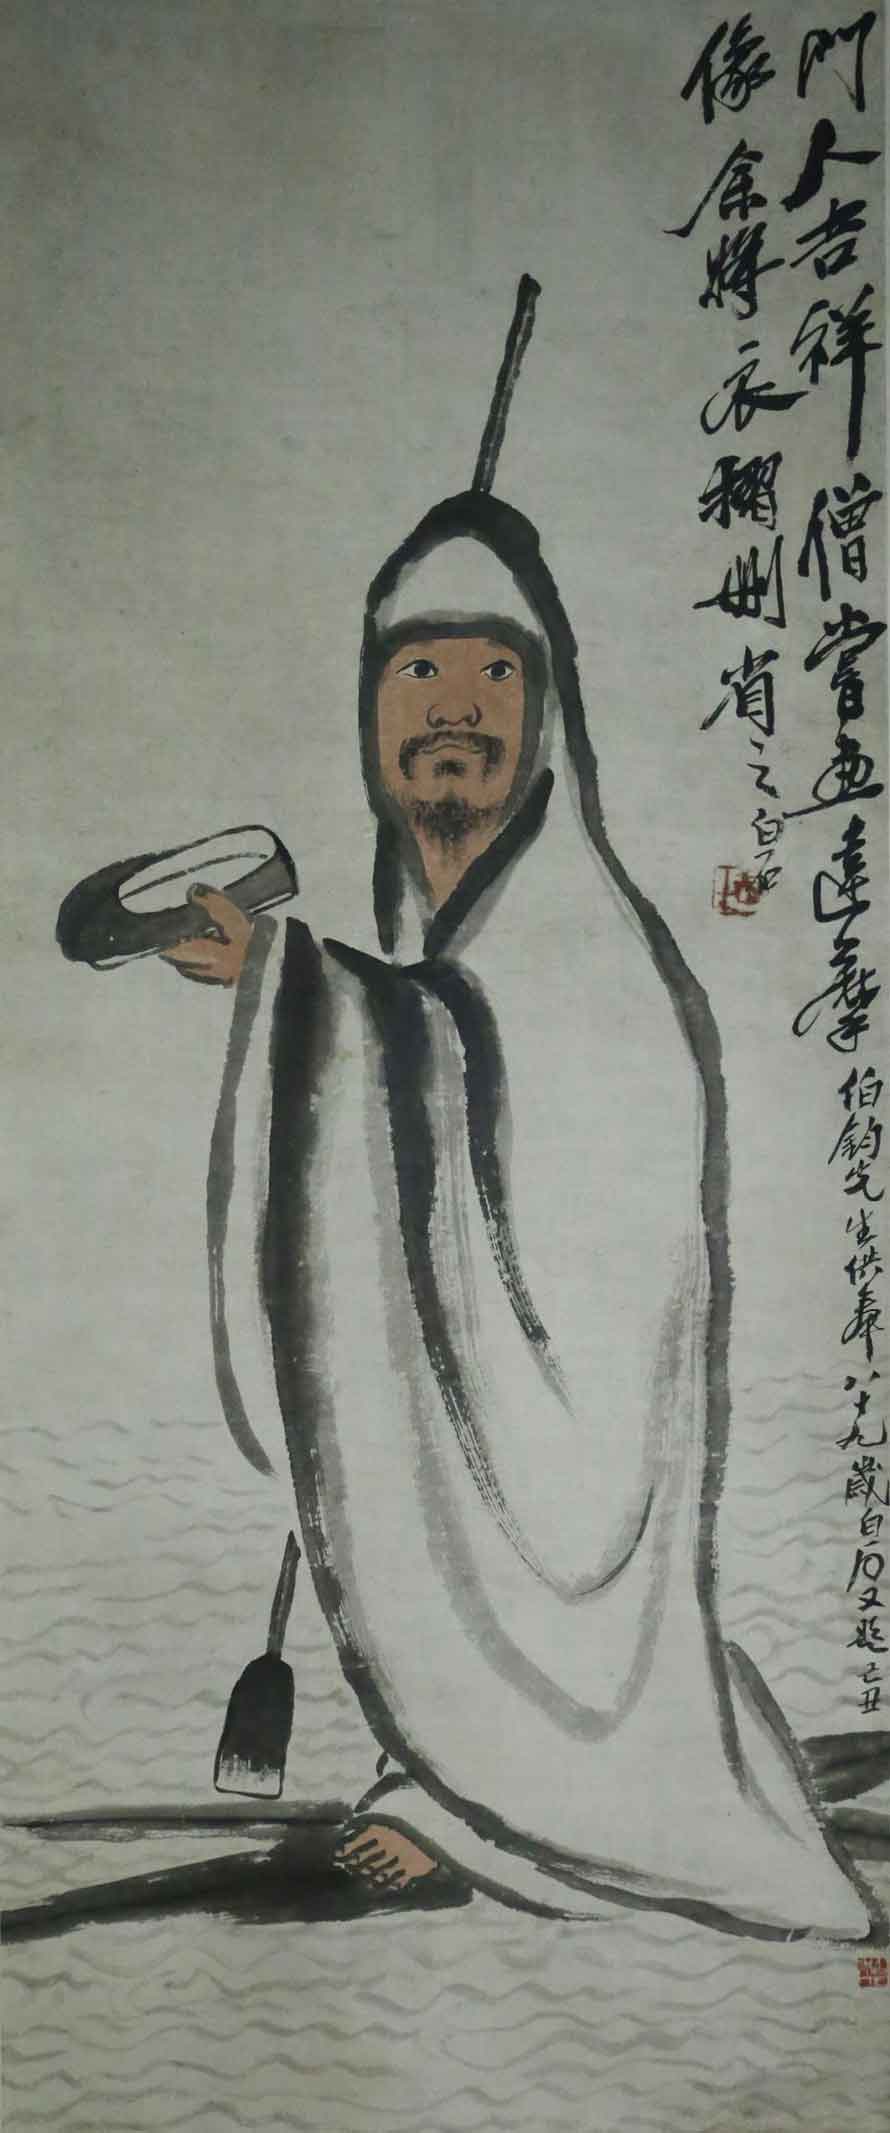 門人吉祥僧嘗畫達摩
像余將衣褶删省之白石
伯鈞先生供奉八十九歲白石又題己丑